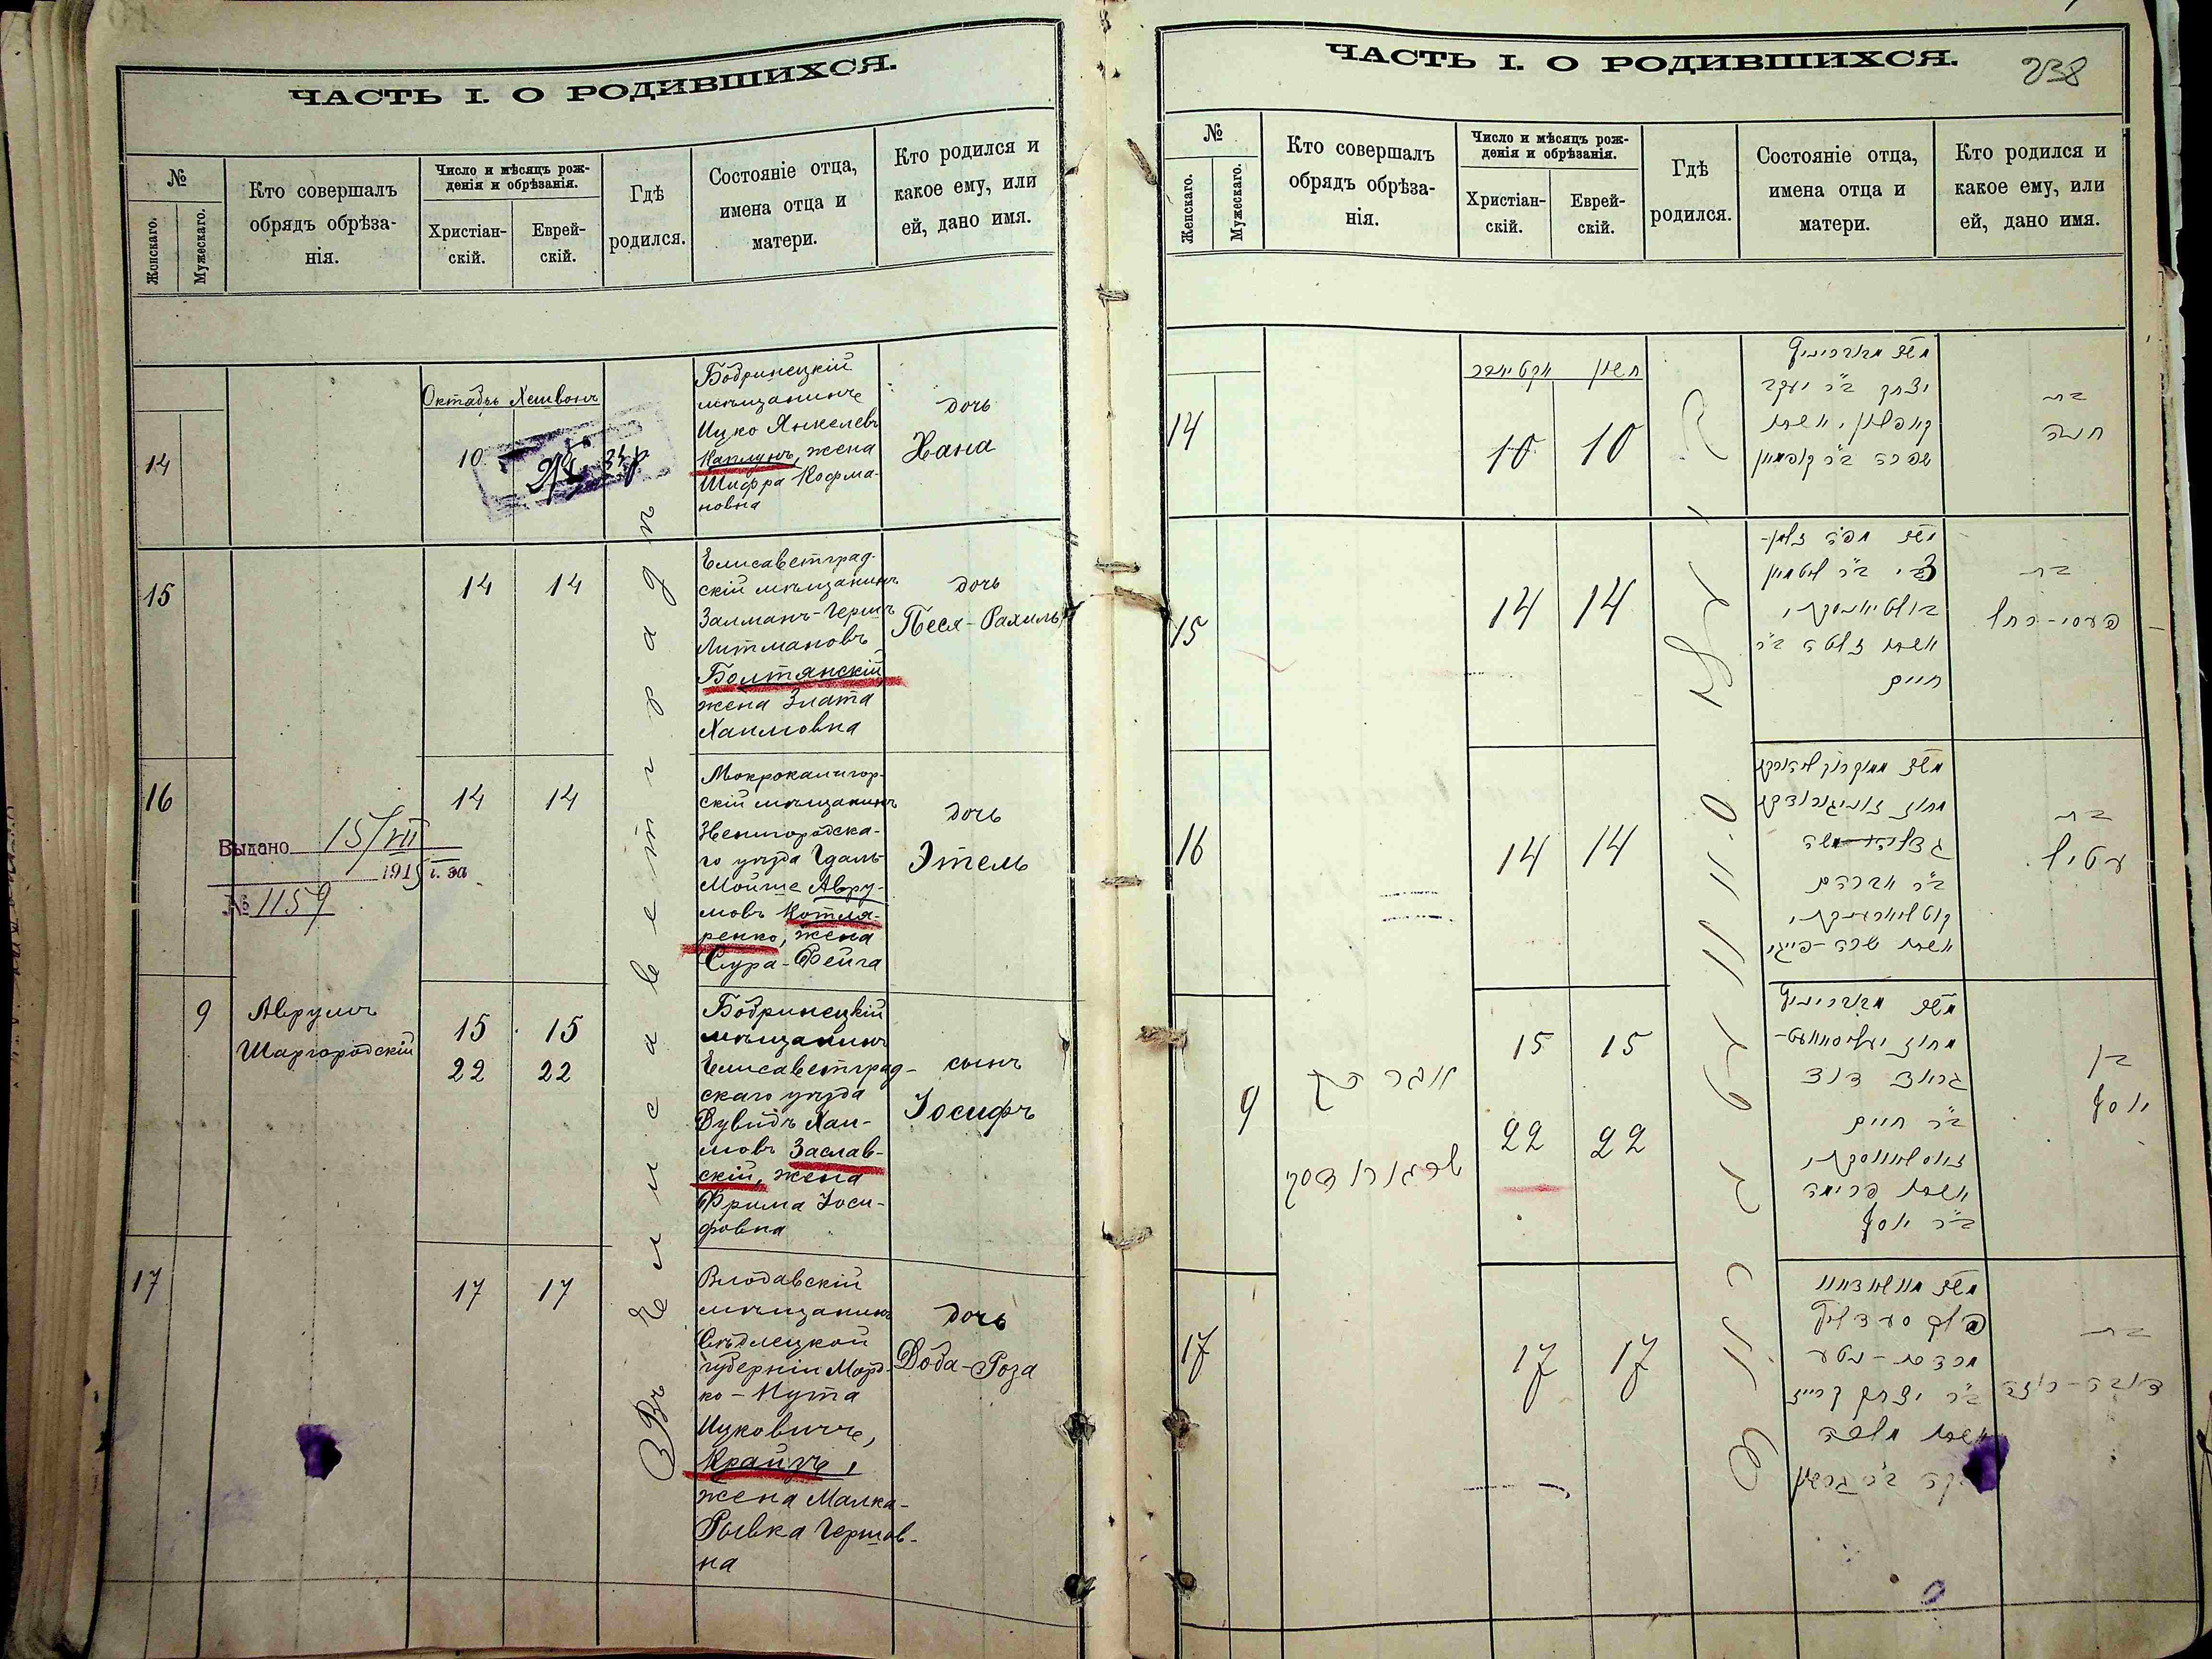 ЧАСТЬ I. О РОДИВШИХСЯ.
№
Женскаго.
Мужескаго.
Кто совершалъ
обрядъ обрѣза-
нія.
Число и мѣсяцъ рож-
денія и обрѣзанія.
Христіан-
скій.
Еврей-
скій.
Гдѣ
родился.
Состояніе отца,
имена отца и
матери.
Кто родился и
какое ему, или
ей, дано имя.
Октябрь Хешвонъ
Въ Елисаветградѣ
14
10
Бобринецкій
мѣщанинъ
Ицко Янкелевъ
Каплунъ, жена
Шифра Кофма-
новна
дочь
Хана
15
14 14
Елисаветград-
скій мѣщанинъ
Залманъ-Гершъ
Литмановъ
Болтянскій
жена Злата
Хаимовна
дочь
Песя-Рахиль
16
Выдано 15/VII
1915 г. за
№ 1159
14 14
Мокрокалигор-
скій мѣщанинъ
Звенигородска-
го уѣзда Гдаль
Мойше Авру-
мовъ Котля-
ренко, жена
Сура-Фейга
дочь
Этель
9
Аврумъ
Шаргородскій
15 15
22 22
Бобринецкій
мѣщанинъ
Елисаветград-
скаго уѣзда
Дувидъ Хаи-
мовъ Заслав-
скій, жена
Фрима Іоси-
фовна
сынъ
Іосифъ
17
17 17
Влодавскій
мѣщанинъ
Сѣдлецкой
губерніи Морд-
ко-Нута
Ицковичъ,
Крайзъ,
жена Малка-
Рывка Гершов-
на
дочь
Доба-Роза
ЧАСТЬ I. О РОДИВШИХСЯ.
238
№
Женскаго.
Мужескаго.
Кто совершалъ
обрядъ обрѣза-
нія.
Число и мѣсяцъ рож-
денія и обрѣзанія.
Христіан-
скій.
Еврей-
скій.
Гдѣ
родился.
Состояніе отца,
имена отца и
матери.
Кто родился и
какое ему, или
ей, дано имя.
14
10 10
יצחק ב״ר יעקב
שפרה ב״ר קופמאן
בת
חנה
15
14 14
צבי ב״ר ליטמאן
אשתו זלטה ב״ר
חיים
בת
פעסי-רחל
16
14 14
גדליהו משה
ב״ר אברהם
אשתו שרה-פייגי
בת
עטיל
9
אברהם
שרגאראדסקי
15 15
22 22
ב״ר חיים
אשתו פרימה
ב״ר יוסף
בן
יוסף
17
17 17
מרדכי-נטע
ב״ר יצחק קרייז
אשתו מלכה
רבקה ב״ר גרשון
בת
דובה-רוזה